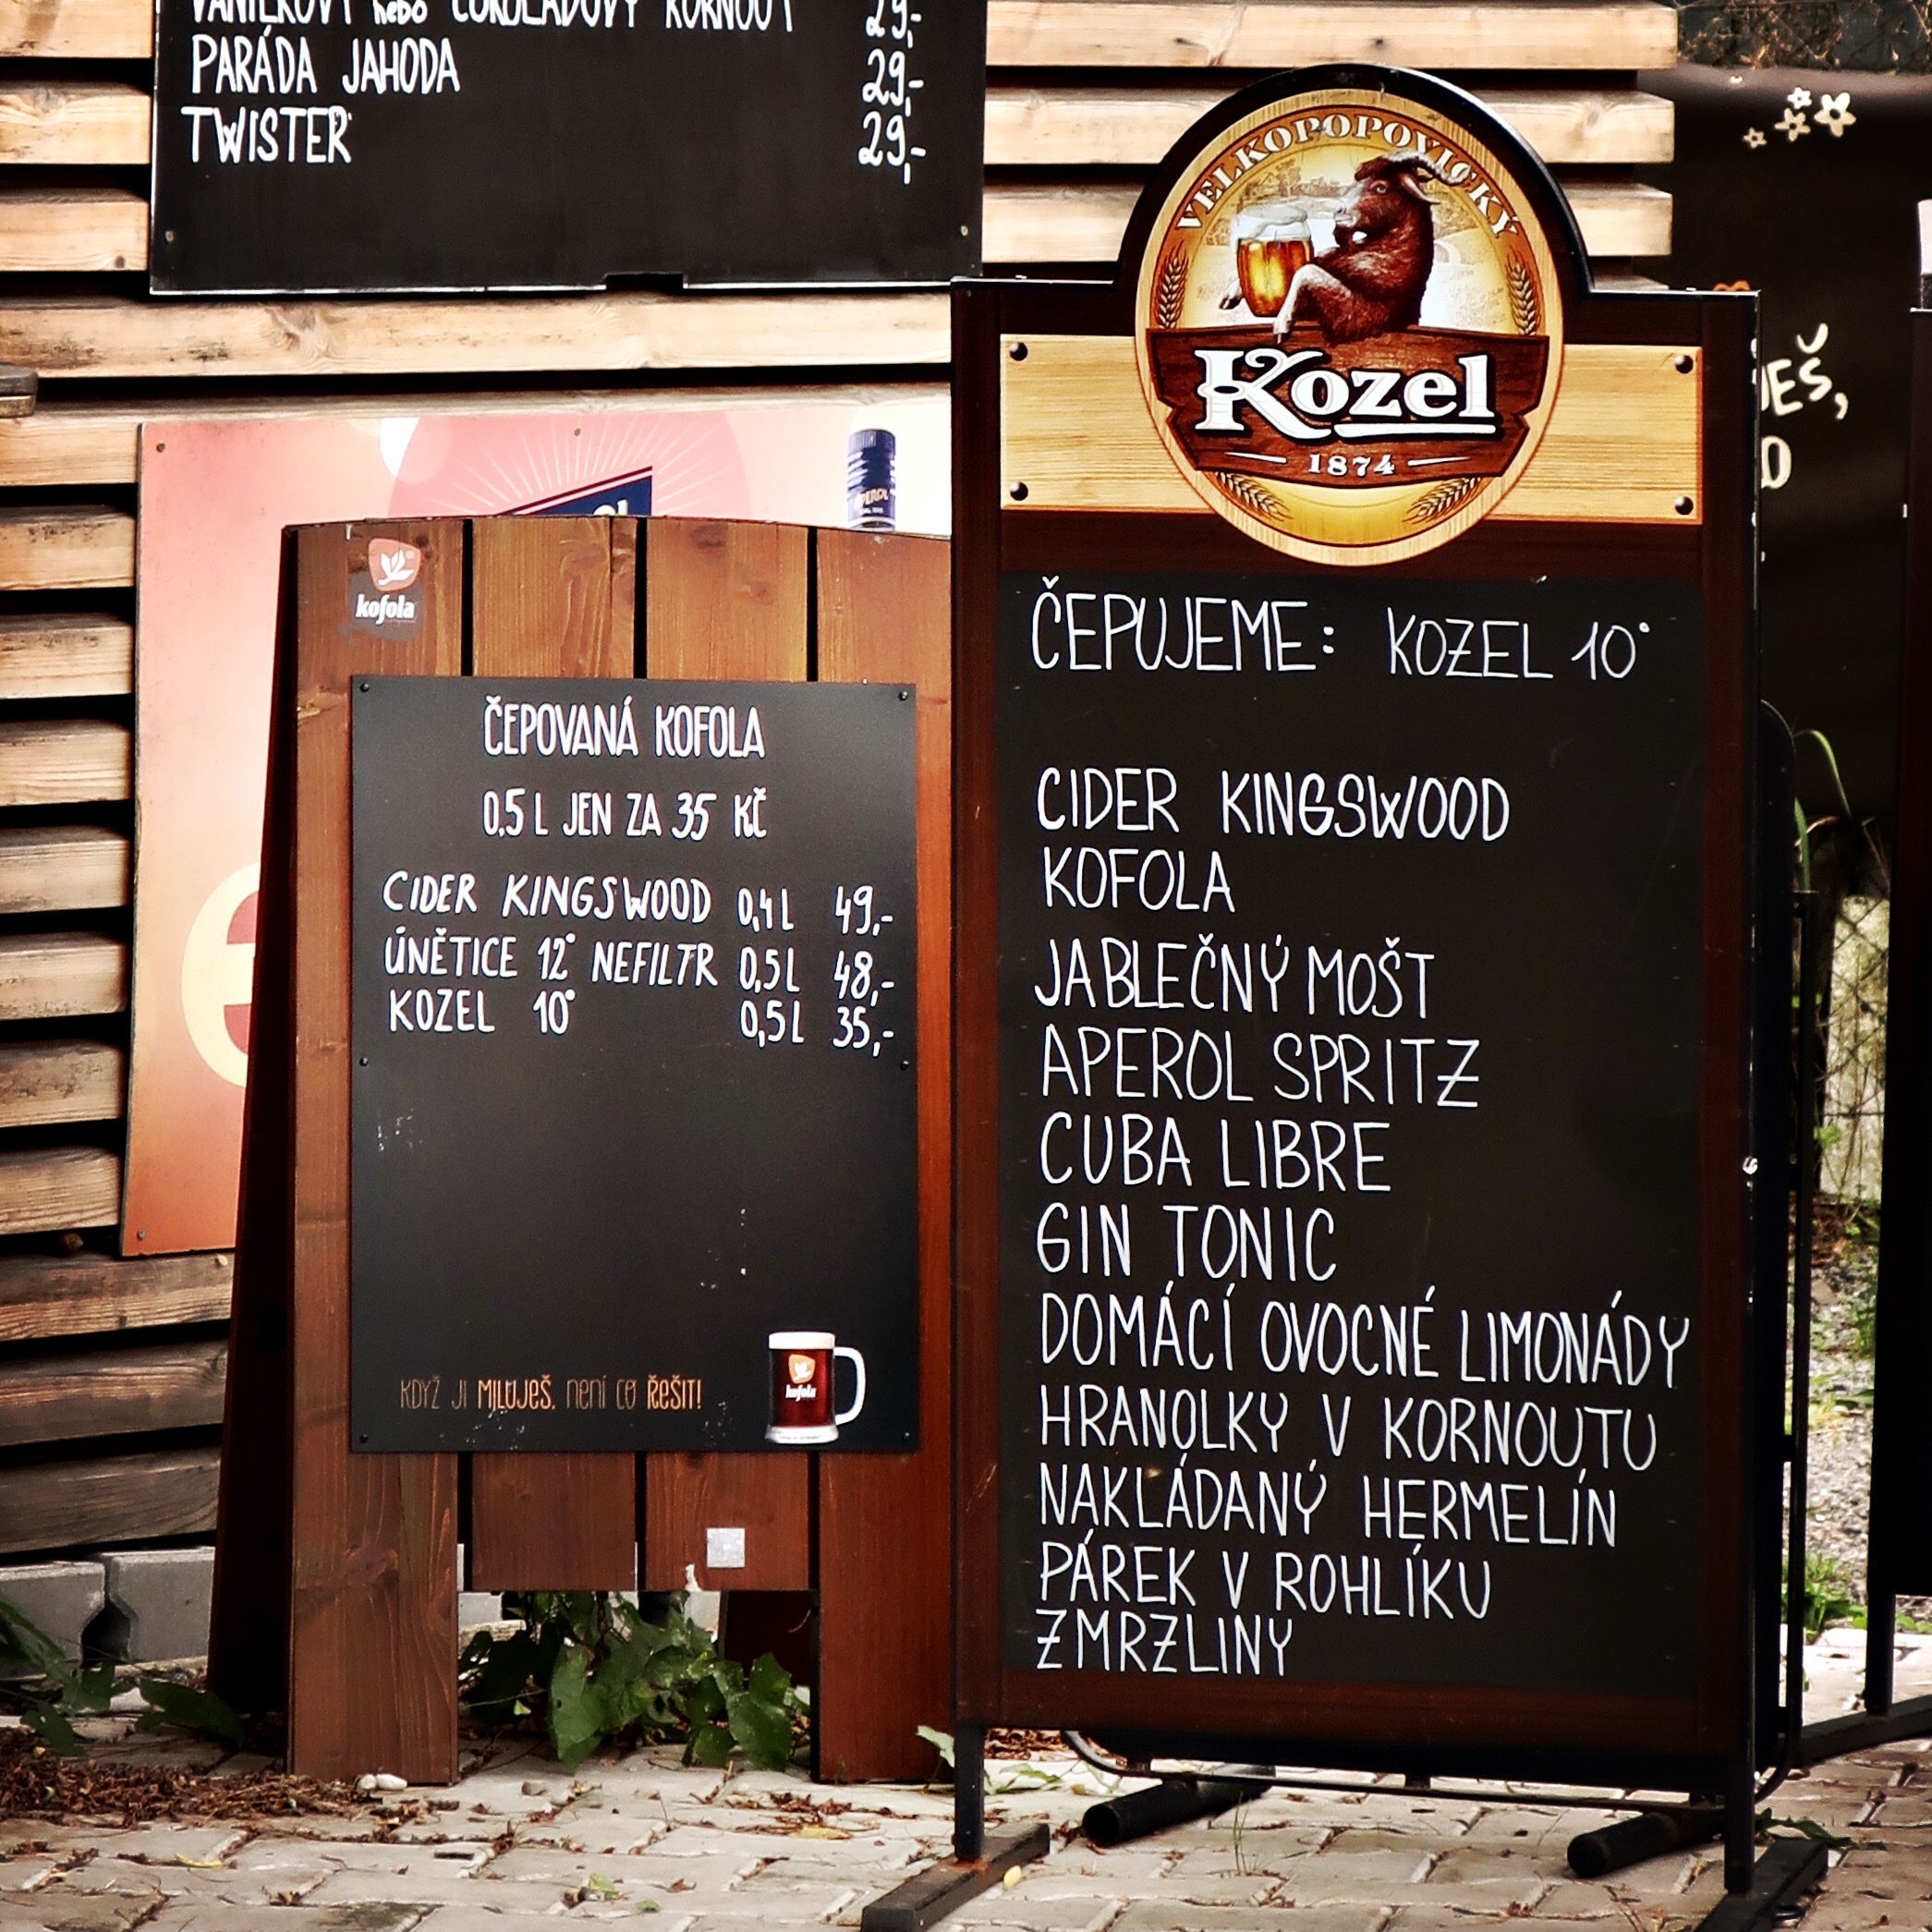 VANILKOVÝ nebo ČOKOLÁDOVÝ KORNOUT 29,-
PARÁDA JAHODA 29,-
TWISTER 29,-
APEROL
kofola
ČEPOVANÁ KOFOLA
0,5 L JEN ZA 35 KČ
CIDER KINGSWOOD 0,4 L 49,-
ÚNĚTICE 12° NEFILTR 0,5 L 48,-
KOZEL 10° 0,5 L 35,-
KDYŽ JI MILUJEŠ, není co ŘEŠIT!
kofola
VELKOPOPOVICKÝ
Kozel
1874
ČEPUJEME: KOZEL 10°
CIDER KINGSWOOD
KOFOLA
JABLEČNÝ MOŠT
APEROL SPRITZ
CUBA LIBRE
GIN TONIC
DOMÁCÍ OVOCNÉ LIMONÁDY
HRANOLKY V KORNOUTU
NAKLÁDANÝ HERMELÍN
PÁREK V ROHLÍKU
ZMRZLINY